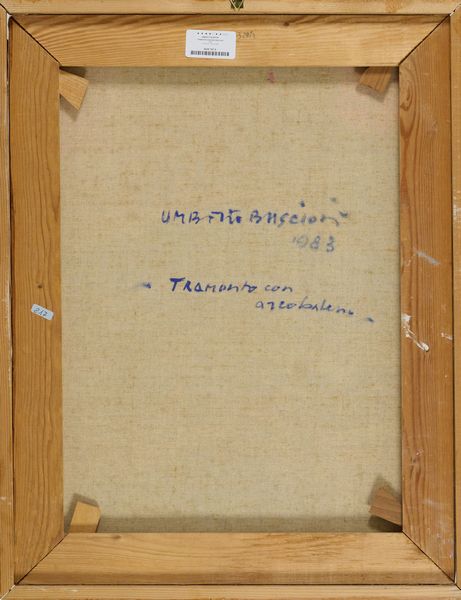 UMBERTO BUSCIONI
1983
- TRAMONTO con
arcobaleno -